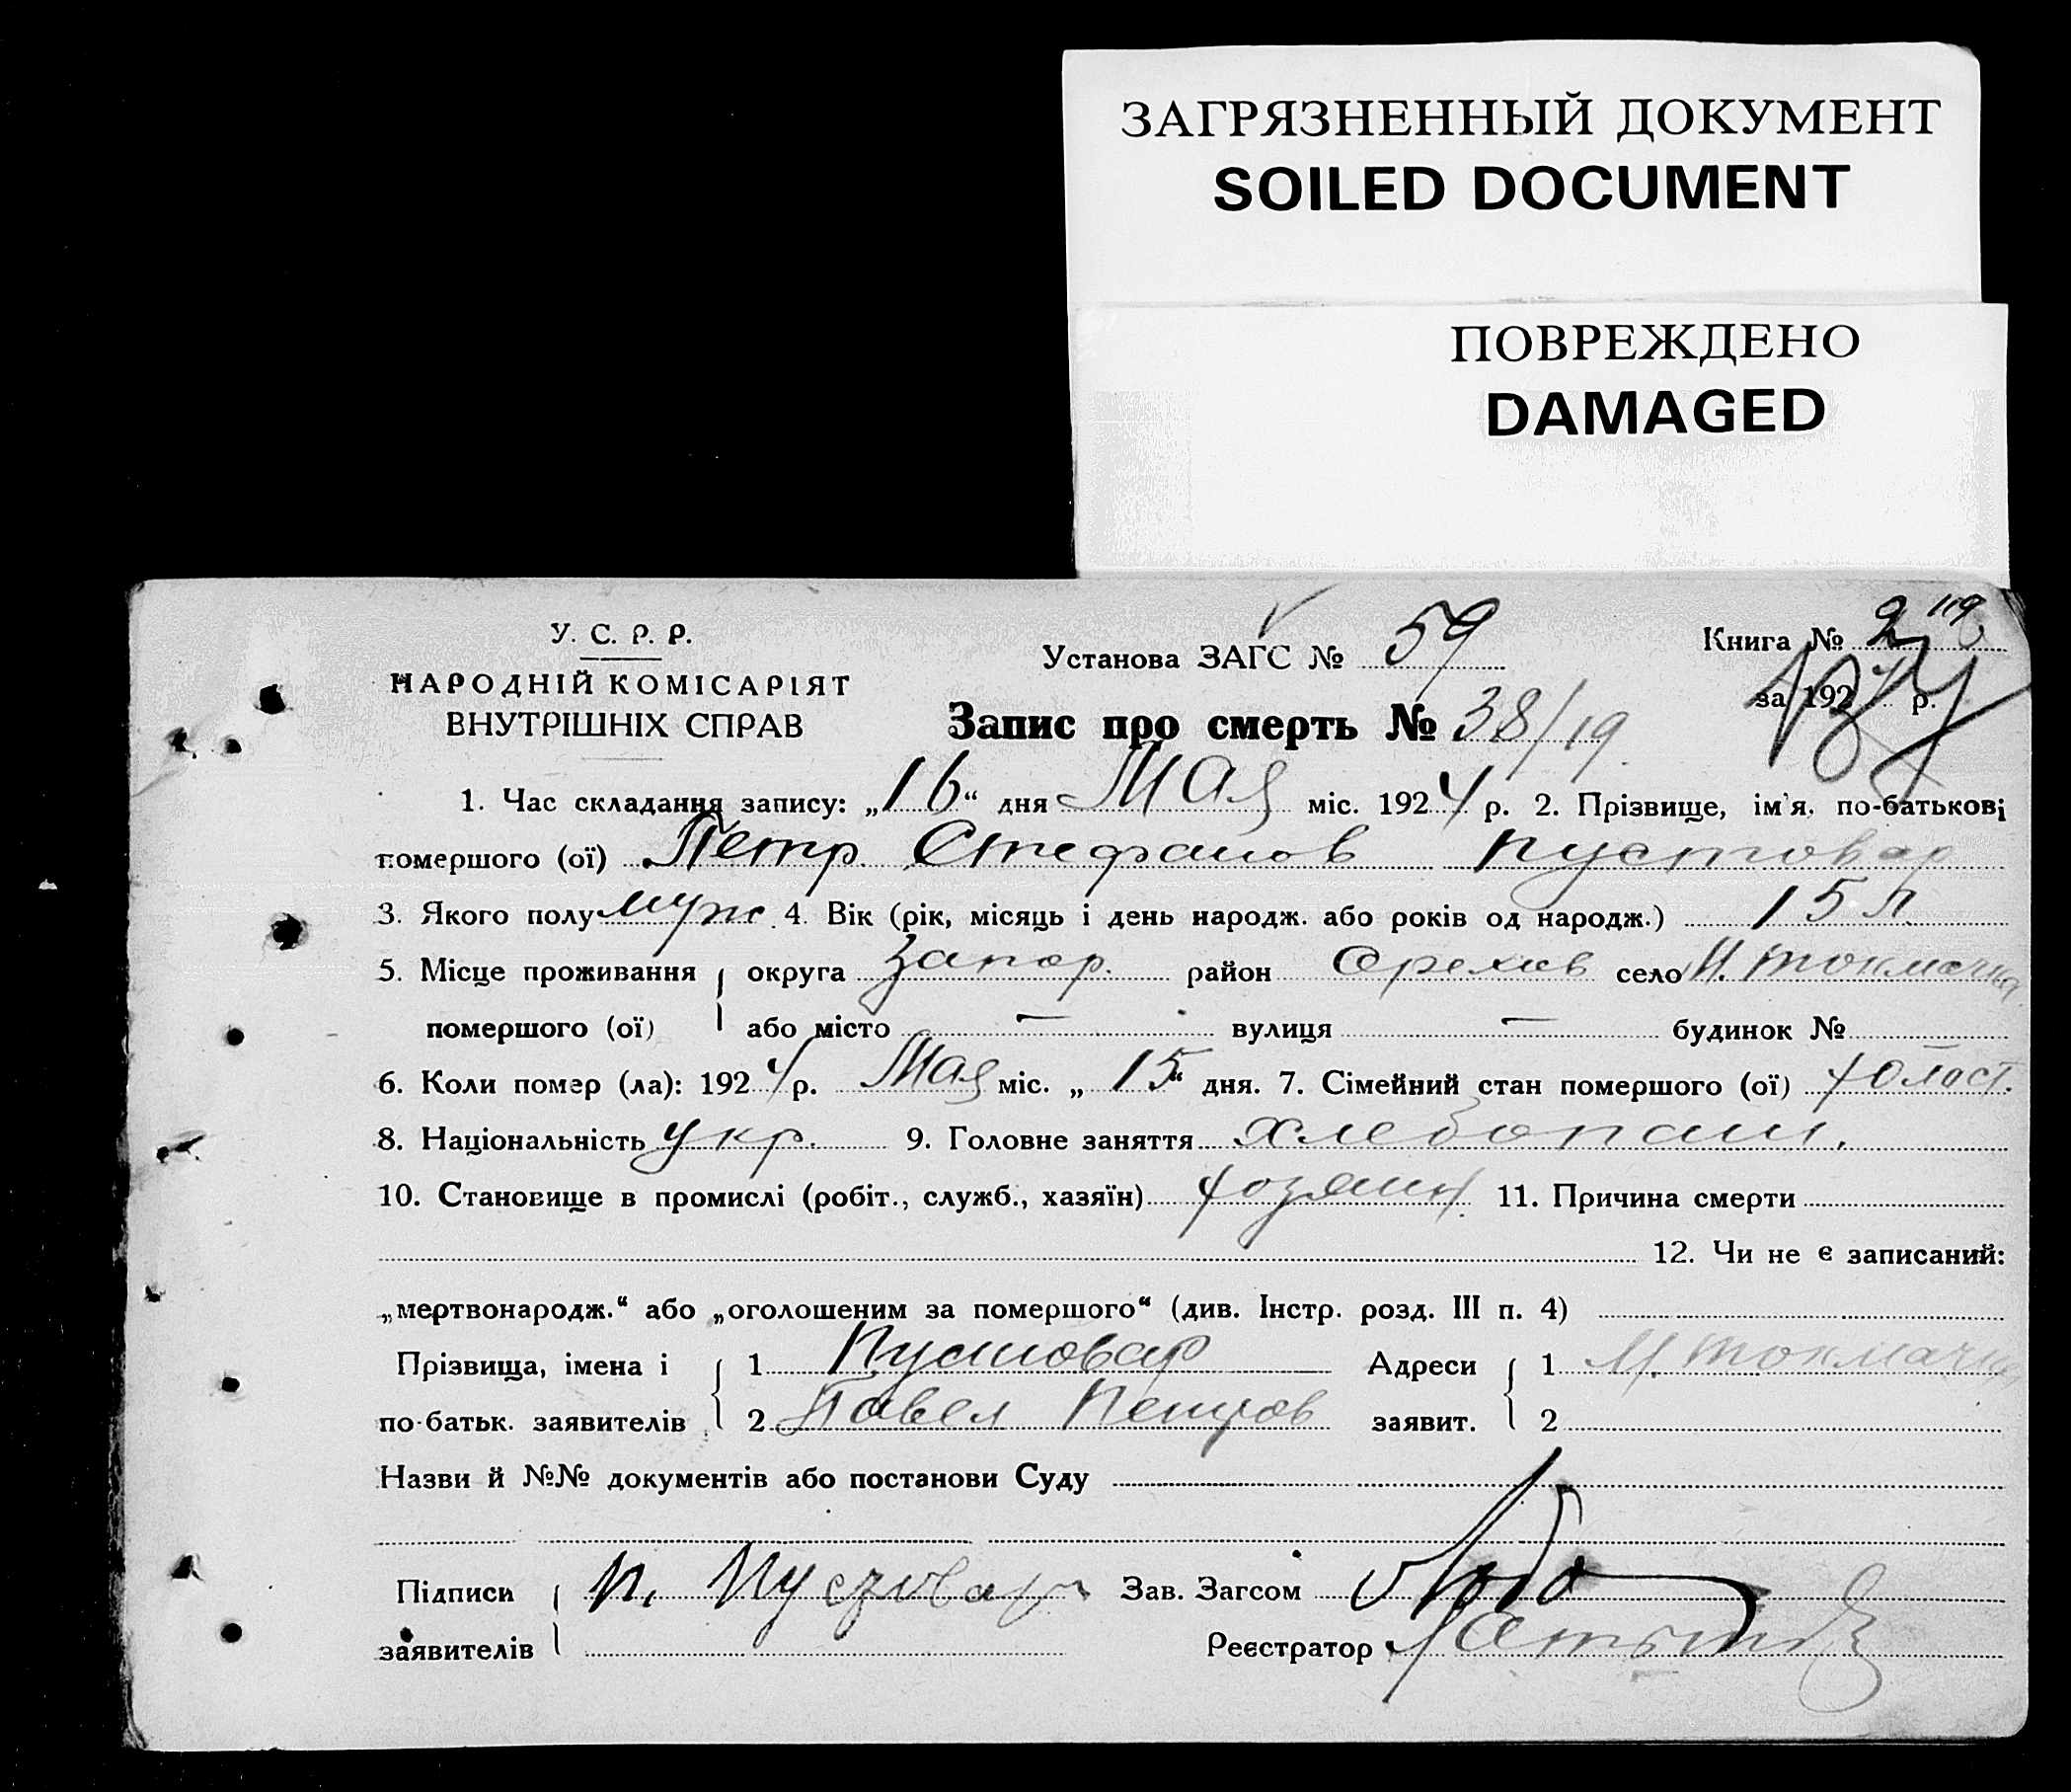 ЗАГРЯЗНЕННЫЙ ДОКУМЕНТ
SOILED DOCUMENT
ПОВРЕЖДЕНО
DAMAGED
У. С. Р. Р.
НАРОДНІЙ КОМІСАРІЯТ
ВНУТРІШНІХ СПРАВ
Установа ЗАГС № 59
Книга № 2
за 1924 р.
Запис про смерть № 38/19
1. Час складання запису: „16“ дня Мая міс. 1924 р. 2. Прізвище, ім'я, по-батькові
помершого (ої) Петр Стефанов Пустовар
3. Якого полу муж. 4. Вік (рік, місяць і день народж. або років од народж.) 15 л
5. Місце проживання округа Запор. район Орехов село М. Токмачка
помершого (ої) або місто — вулиця — будинок № —
6. Коли помер (ла): 1924 р. Мая міс. „15“ дня. 7. Сімейний стан помершого (ої) холост.
8. Національність укр. 9. Головне заняття Хлебопаш.
10. Становище в промислі (робіт., служб., хазяїн) хозяин. 11. Причина смерти
12. Чи не є записаний:
„мертвонародж.“ або „оголошеним за помершого“ (див. Інстр. розд. III п. 4)
Прізвища, імена і 1 Пустовар Адреси 1 М. Токмачка
по-батьк. заявителів 2 Павел Петров заявит. 2
Назви й №№ документів або постанови Суду
Підписи П. Пустовар Зав. Загсом
заявителів Реєстратор